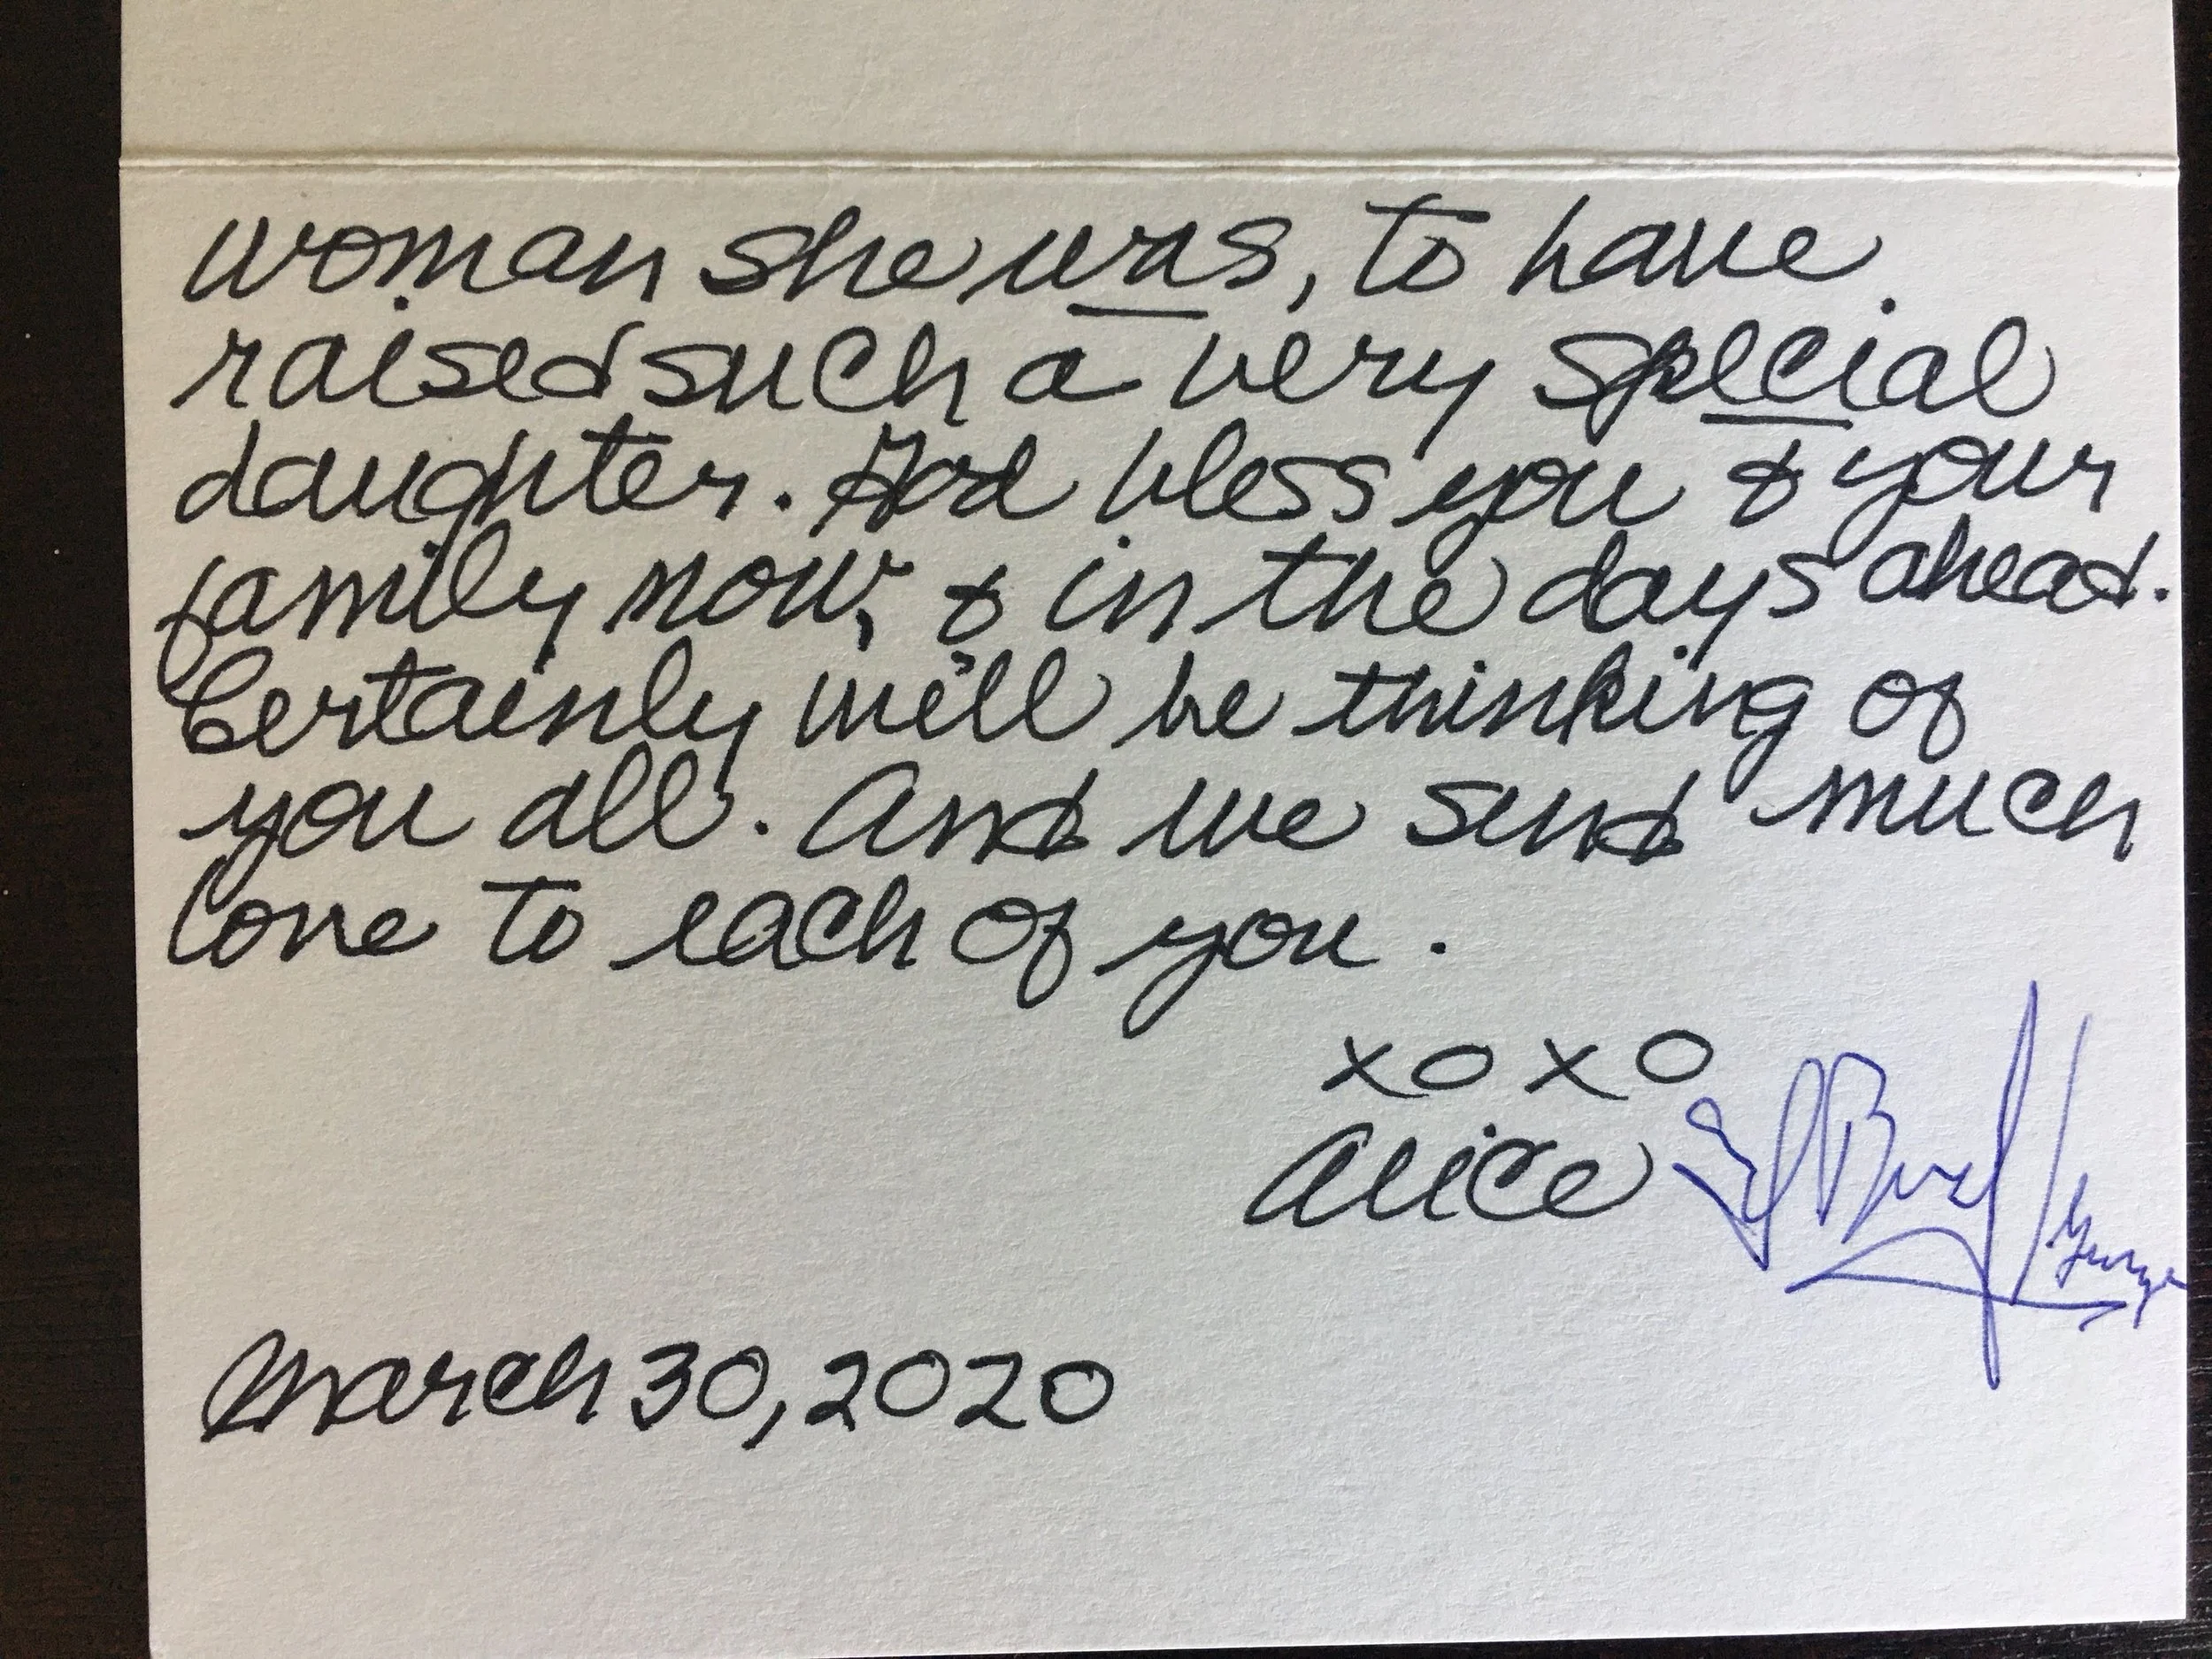 woman she was, to have
raised such a very special
daughter. God bless you & your
family now, & in the days ahead.
Certainly we'll be thinking of
you all. And we send much
love to each of you.
xoxo
Alice
March 30, 2020